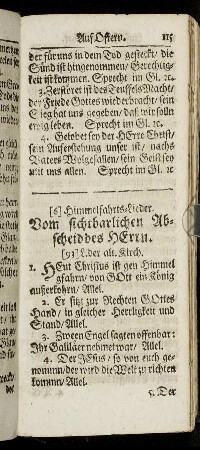 Auf Ostern. 115
der für uns in dem Tod gesteckt/ die
Sünd ist hingenommen/ Gerechtig-
keit ist kommen. Sprecht im Gl. ꝛc.
3. Zerstöret ist des Teuffels Macht/
der Friede Gottes wiederbracht/ sein
Sieg hat uns gegeben/ daß wir solln
ewig leben. Sprecht im Gl. ꝛc.
4. Gelobet sey der HErre Christ/
sein Auferstehung unser ist/ nachs
Vaters Wolgefallen/ sein Geist sey
mit uns allen. Sprecht im Gl. ꝛc
[6] Himmelfahrts-Lieder.
Vom sichtbarlichen Ab-
scheid des HErrn.
(93) L. der alt. Kirch.
1. HEut Christus ist gen Himmel
gfahrn/ von GOtt ein König
außerkohrn/ Allel.
2. Er sitzt zur Rechten GOttes
Hand/ in gleicher Herrligkeit und
Stand/ Allel.
3. Zween Engel sagten offenbar:
Ihr Galiläer nehmet war/ Allel.
4. Der JEsus/ so von euch ge-
nommn/ der wird die Welt zu richten
kommn/ Allel.
5. Der